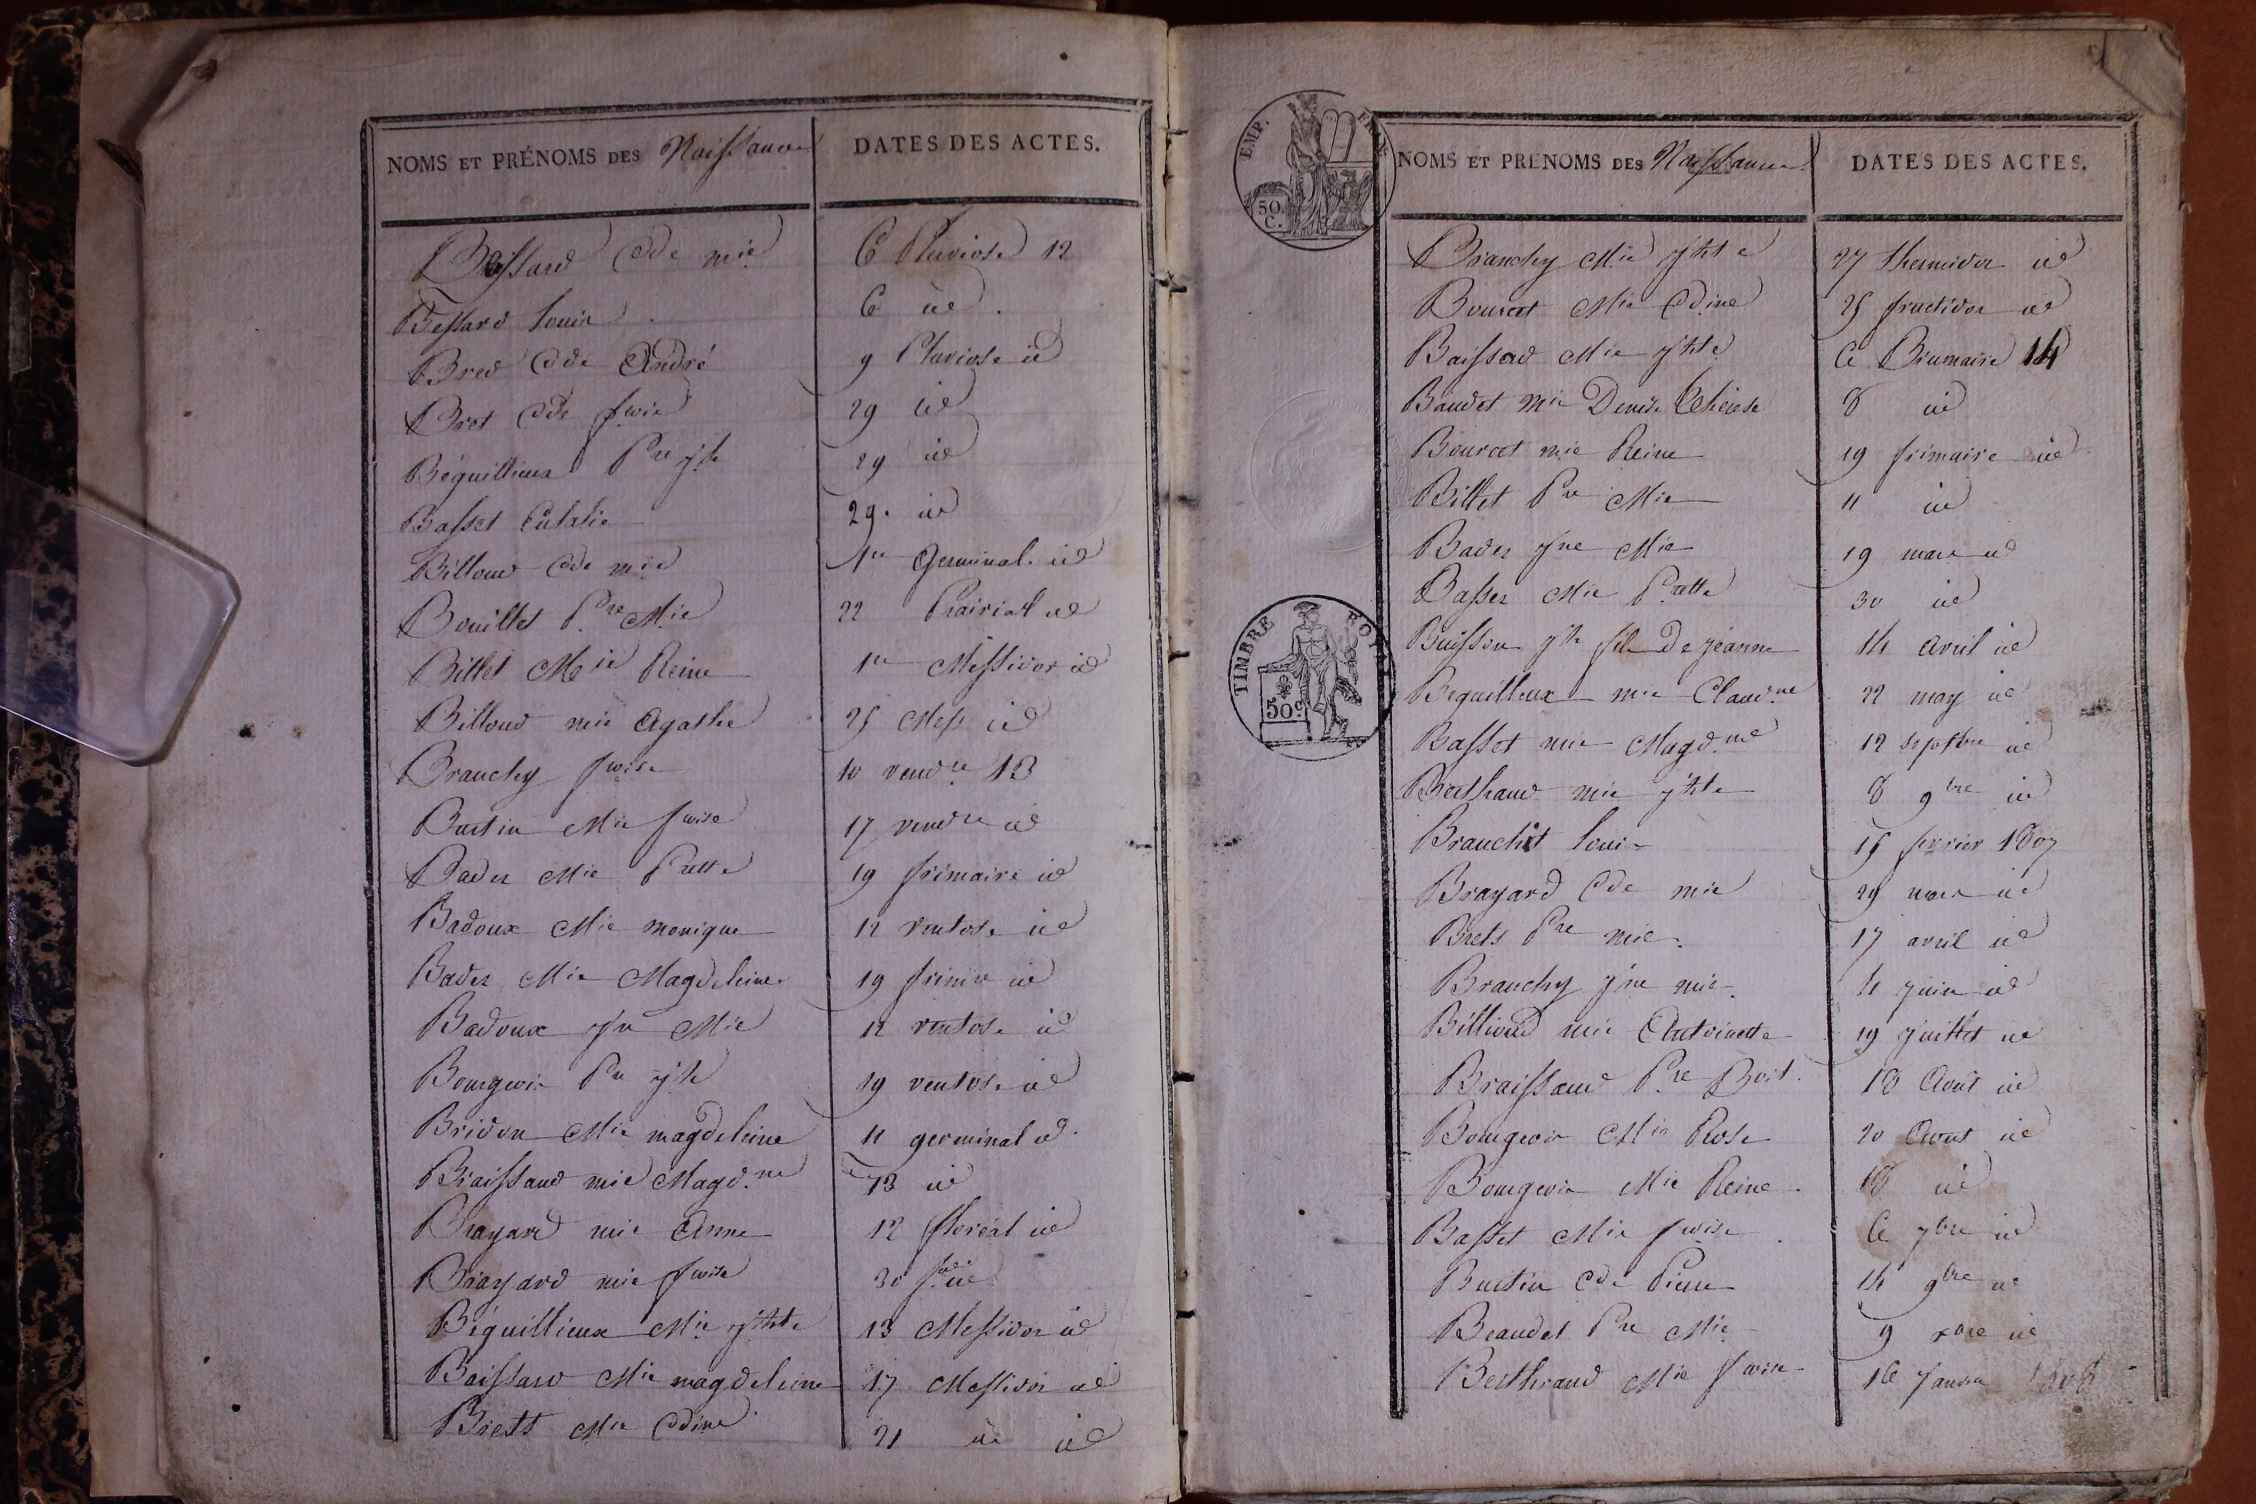 NOMS ET PRÉNOMS DES Naissances DATES DES ACTES.
Bessard Cde mie 6 Pluviose 12
Bessard Louis 6 id
Bred Cde André 9 Pluviose id
Bret Cde fçoise 29 id
Béguillieux Pre jph 29 id
Basset Eulalie 29. id
Billoud Cde mie 1er Germinal id
Bouillet Pre Mie 22 Prairial id
Billet Mie Reine 1er Messidor id
Billoud mie Agathe 25 Mess id
Branchy fçoise 10 vendre 13
Burtin Mie fçoise 17 vendre id
Bader Mie Prette 19 frimaire id
Badoux Mie monique 12 Ventose id
Bader Mie Magdeleine 19 frimre id
Badoux jn Mie 12 ventose id
Bourgeois Pre jph 19 ventose id
Bridon Mie magdeleine 11 germinal id
Braissaud mie Magdne 13 id
Brayard mie Anne 12 floréal id
Brayard mie fçoise 30 id
Béguillieux Mie jphte 13 Messidor id
Baissard Mie magdeleine 17 Messidor id
Brest Mie Cdine 21 id id
EMP.
50 C.
TIMBRE ROYAL
50c
NOMS ET PRÉNOMS DES Naissances DATES DES ACTES.
Branchy Mie jphte 27 thermidor id
Bourcet Mie Cdine 25 fructidor id
Baissard Mie jphte 6 Brumaire 14
Baudet mie Denise Thérèse 8 id
Bourcet mie Reine 19 frimaire id
Billet Pre Mie 11 id
Bader jne Mie 19 mars id
Basset Mie Prette 30 id
Buisson jh fils de jeanne 14 avril id
Beguilleux mie Claudne 22 may id
Basset mie Magdne 12 septbre id
Berthaud mie jphte 8 9bre id
Branchit Louis 15 février 1807
Brayard Cde mie 29 mars id
Brets Pre mie 17 avril id
Branchy jne mie 11 juin id
Billioud mie Antoinette 19 juillet id
Braissaud Pre Boit. 18 Août id
Bourgeois Mie Rose 20 Aout id
Bourgeois Mie Reine 18 id
Basset Mie fçoise 6 7bre id
Burtin Cde Pierre 14 9bre id
Beaudet Pre Mie 9 xbre id
Berthraud Mie fçoise 16 Janvier 1808